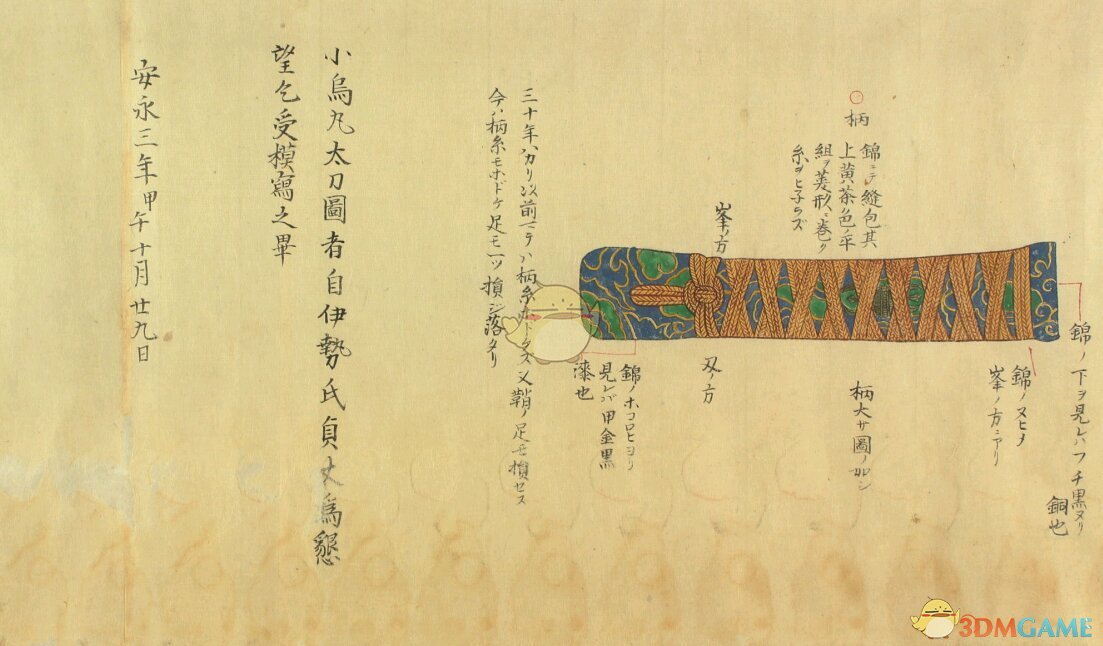 錦ノ下ヲ見レハフチ黒ヌリ
銅也
錦ノヌヒメ
峯ノ方ニアリ
○
柄
錦ニテ縫包其
上黄茶色ノ平
組ヲ菱形ニ巻ク
糸ヲヒ子ラズ
柄大サ圖ノ如シ
峯ノ方
刄ノ方
錦ノホコロヒヨリ
見レバ甲金黒
漆也
三十年ハカリ以前マテハ柄糸ホドケズ又鞘ノ足モ損セス
今ハ柄糸モホドケ足モ一ツ損ジ落タリ
小烏丸太刀圖者自伊勢氏貞丈為懇
望乞受模寫之畢
安永三年甲午十月廿九日
3DMGAME